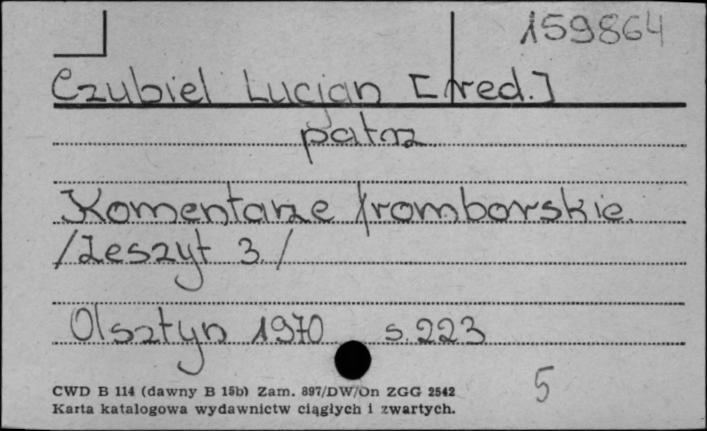 159864
Czubiel Lucjan [red.]
patrz
Komentarze fromborskie.
/Zeszyt 3./
Olsztyn 1970 s.223
5
CWD B 114 (dawny B 15b) Zam. 897/DW/On ZGG 2542
Karta katalogowa wydawnictw ciągłych i zwartych.